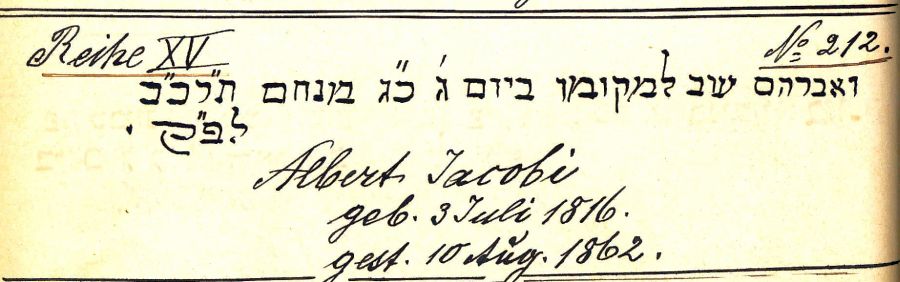 Reihe XV
No 212.
ואברהם שוב למקומו ביום ג' כ"ג מנחם ת"רכ"ב
לפ"ק.
Albert Jacobi
geb. 3 Juli 1816.
gest. 10 Aug. 1862.